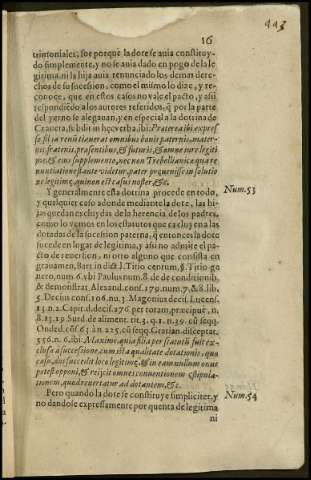 16
trimoniales, fue porque la dote se auia constituy-
do simplemente, y no se auia dado en pago de la le
gitima, ni la hija auia renunciado los demas derec
hos de su sucession, como el mismo lo dize, y re-
conoce, que en estos casos no vale el pacto, y assi
respondiẽdo a los autores referidos, q̃ por la parte
del yerno se aleganan, y en especial a la dotrina de
Craueta, subdit in hęc verba, ibi: Præterea ibi expres
se filia renũtiauerat omnibus bonis paternis, mater-
nis, fraternis, præsentibus, & futuris, & omne iure legiti
me, & eius supplemento, nec non Trebellianicæ, qua re
nuntiatione stante videtur, pater
in solutio
ne legitimę, qui non est casus noster &c.
Y generalmente esta dotrina procede en todo,
y qualquier caso adonde mediante la dote, las hi-
jas quedan excluydas de la herencia de los padres,
como lo vemos en los estatutos que excluyen a las
dotadas de la sucession paterna, q̃ entonces la dote
sucede en lugar de legitima, y assi no admite el pa-
cto de reuersion, ni otro alguno que consista en
grauamen, Bart. in dict. l. Titio centum, §. Titio ge
nero, num. 6. vbi Paulus num. 8. de de conditionib,
& demonstrat. Alexand. conf. 179. num. 7. & 8. lib.
5. Decius conf. 106. nu. 3. Magonius decis. Lucens.
13. n. 2. Capit. d. decis. 276. per totam, præcipuè, n.
8. 13. 19. Surd. de aliment. tit. 3. q. 1. n. 39. cũ seqq.
Onded. cõs. 63. àn. 225. cũ seqq. Gratian. disceptat.
556. n. 6. ibi: Maxime quia filia per statutũ fuit ex-
clusa à successione, cum ista qualitate dotationis, quo
casu, dos succedit loco legitimę, & in eam nullum onus
potest apponi, & reijcit omnes conuentionem & stipula-
tionem, quod reuertatur ad dotantem, &c.
Pero quando la dote se constituye simpliciter, y
no dandose expressamente por quenta de legitima
ni
Num. 53
Num. 54